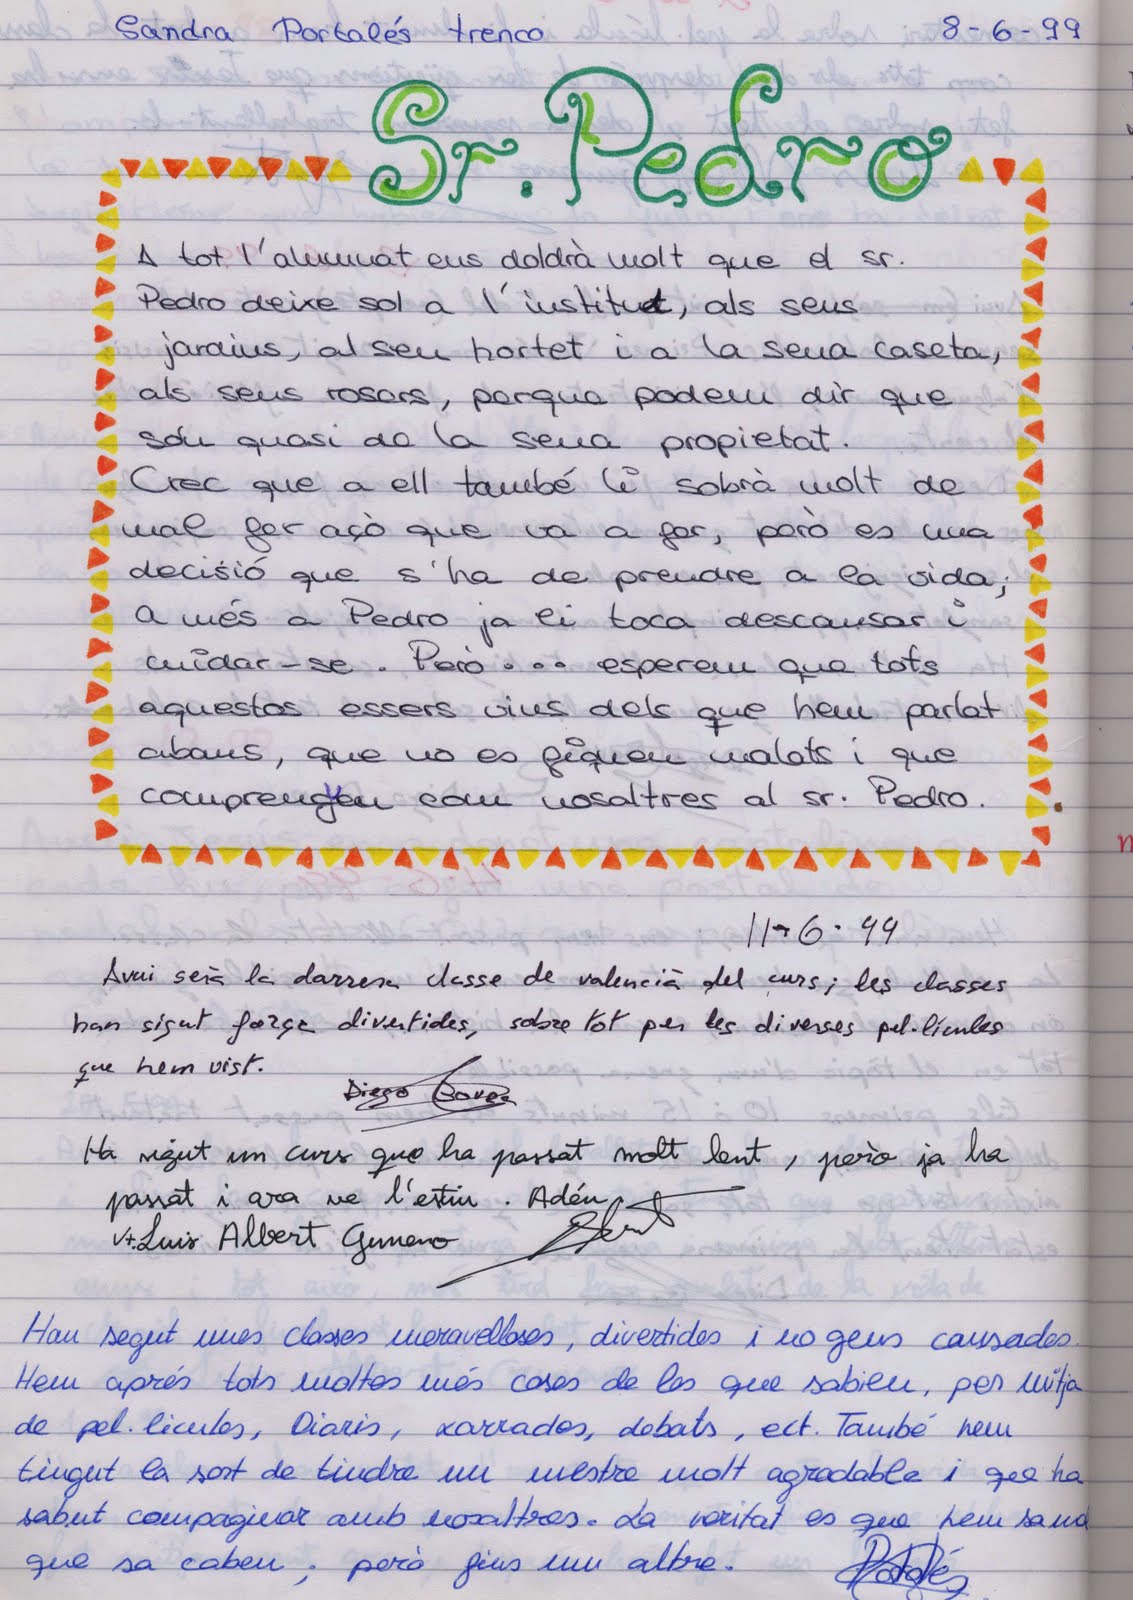 Sandra Portalés trenco 8-6-99
Sr. Pedro
A tot l'alumnat ens doldrà molt que el sr.
Pedro deixe sol a l'institut, als seus
jardins, al seu hortet i a la seua caseta,
als seus rosers, perque podem dir que
són quasi de la seua propietat.
Crec que a ell també li sobrà molt de
mal fer açò que va a fer, però es una
decisió que s'ha de prendre a la vida;
a més a Pedro ja li toca descansar i
cuidar-se. Però... esperem que tots
aquestos essers vius dels que hem parlat
abans, que no es fiquen malalts i que
comprenguen com nosaltres al sr. Pedro.
11-6-99
Avui serà la darrera classe de valencià del curs; les classes
han sigut força divertides, sobre tot per les diverses pel·lícules
que hem vist.
Diego
Ha sigut un curs que ha passat molt lent, però ja ha
passat i ara ve l'estiu. Adéu
Luis Albert Gimeno
Han segut unes classes meravelloses, divertides i no gens cansades.
Hem aprés tots moltes més coses de les que sabíem, per mitja
de pel·lícules, Diaris, xarrades, debats, ect. També hem
tingut la sort de tindre un mestre molt agradable i que ha
sabut compaginar amb nosaltres. La veritat es que hem
que sa cabeu, però fins un altre.
Portalés